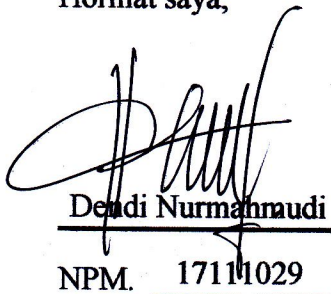 Hormat saya,
Dendi Nurmahmudi
NPM. 17111029